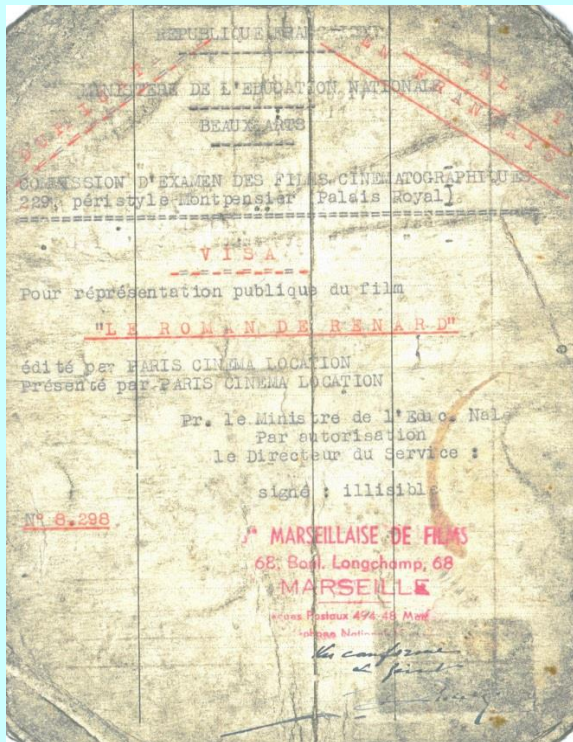 REPUBLIQUE FRANCAISE
MINISTERE DE L'EDUCATION NATIONALE
BEAUX-ARTS
PARLANT
EN FRANCAIS
COMMISSION D'EXAMEN DES FILMS CINEMATOGRAPHIQUES
229, péristyle Montpensier (Palais Royal)
VISA
Pour réprésentation publique du film
"LE ROMAN DE RENARD"
édité par PARIS CINEMA LOCATION
Présenté par PARIS CINEMA LOCATION
Pr. le Ministre de l'Educ. Nale
Par autorisation
le Directeur du Service :
signé : illisible
N° 8.298
MARSEILLAISE DE FILMS
68, Boul. Longchamp, 68
MARSEILLE
Postaux 474-48
Vu conforme